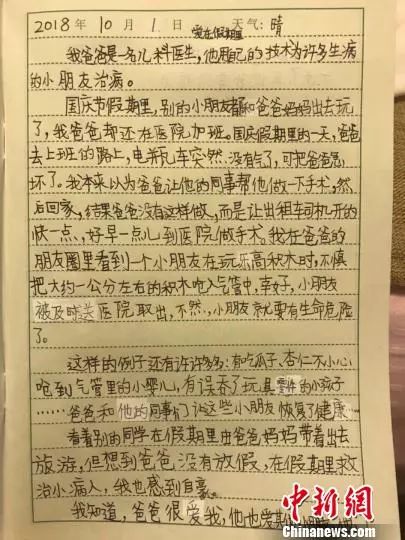 2018年10月1日 爱在假期里 天气:晴
我爸爸是一名儿科医生,他用自己的技术为许多生病
的小朋友治病。
国庆节假期里,别的小朋友都和爸爸妈妈出去玩
了,我爸爸却还在医院加班。国庆假期里的一天,爸爸
去上班的路上,电瓶车突然没有气了,可把爸爸急
坏了。我本来以为爸爸让他的同事帮他做一下手术,然
后回家,结果爸爸没有这样做,而是让出租车司机开的
快一点,好早一点儿到医院做手术。我在爸爸的
朋友圈里看到一个小朋友在玩乐高积木时,不慎
把大约一公分左右的积木呛入气管中,幸好,小朋友
被及时送医院取出,不然,小朋友就要有生命危险
了。
这样的例子还有许许多多:有吃瓜子、杏仁不小心
呛到气管里的小婴儿,有误吞了玩具零件的小孩子
……爸爸和他的同事们让这些小朋友恢复了健康…
看着别的同学在假期里由爸爸妈妈带着出去
旅游,但想到爸爸没有放假,在假期里救
治小病人,我也感到自豪。
我知道,爸爸很爱我,他也爱
中新网
WWW.CHINANEWS.COM